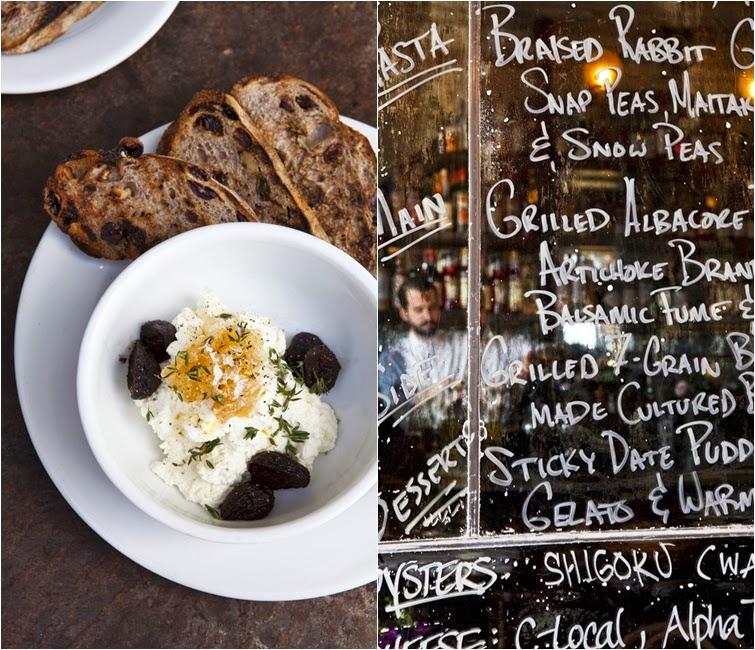 PASTA BRAISED RABBIT
SNAP PEAS, MAITAK
& SNOW PEAS
MAIN GRILLED ALBACORE
ARTICHOKE BRAN
BALSAMIC FUME &
SIDE GRILLED 7-GRAIN B
MADE CULTURED B
DESSERTS STICKY DATE PUDD
GELATO & WARM
OYSTERS: SHIGOKU (WA
CHEESE: C-Local, Alpha T